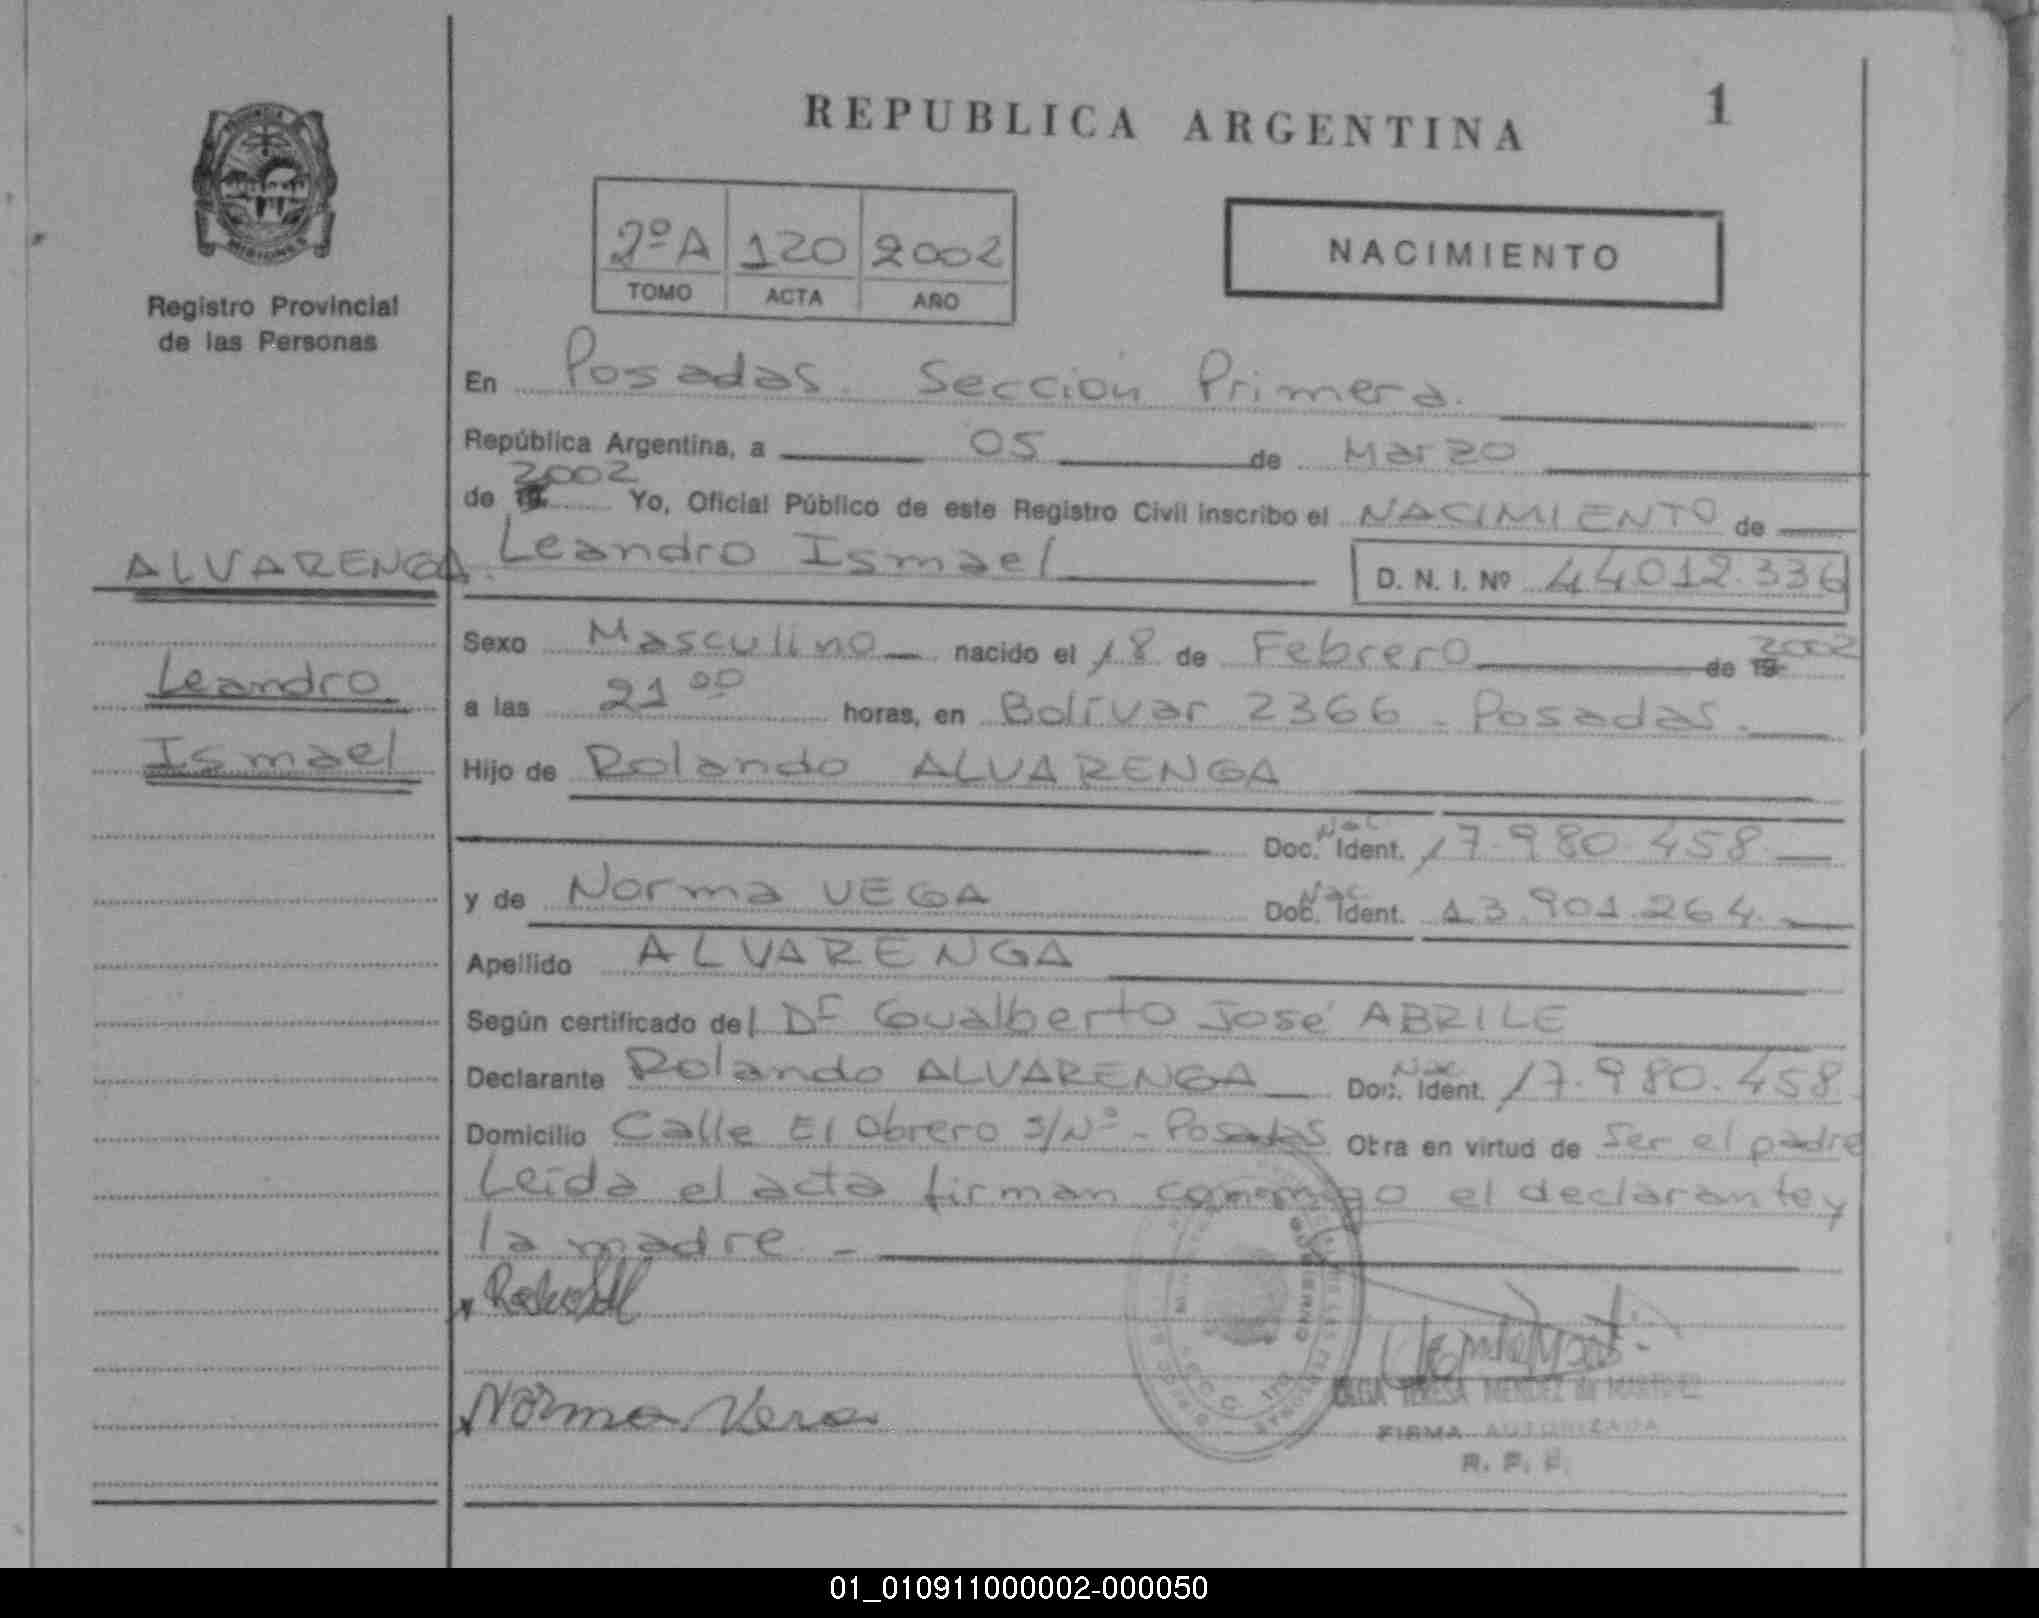 REPUBLICA ARGENTINA
1
2º A 120 2002
TOMO ACTA AÑO
NACIMIENTO
Registro Provincial
de las Personas
En Posadas. Sección Primera.
República Argentina, a 05 de Marzo
de 19 2002 Yo, Oficial Público de este Registro Civil inscribo el NACIMIENTO de
ALVARENGA. Leandro Ismael D. N. I. Nº 44.012.336
Sexo Masculino nacido el 18 de Febrero de 19 2002
Leandro
a las 21 00 horas, en Bolívar 2366 - Posadas.
Ismael
Hijo de Rolando ALVARENGA
Doc. Nac Ident. 17.980.458
y de Norma VEGA Doc. Nac Ident. 13.901.264
Apellido ALVARENGA
Según certificado del Dr Gualberto José ABRILE
Declarante Rolando ALVARENGA Doc. Nac Ident. 17.980.458
Domicilio Calle El Obrero S/Nº - Posadas Obra en virtud de Ser el padre
Leída el acta firman conmigo el declarante y
la madre -
Norma
OLGA TERESA MENDEZ de MARTINEZ
FIRMA AUTORIZADA
R. P. P.
01_010911000002-000050